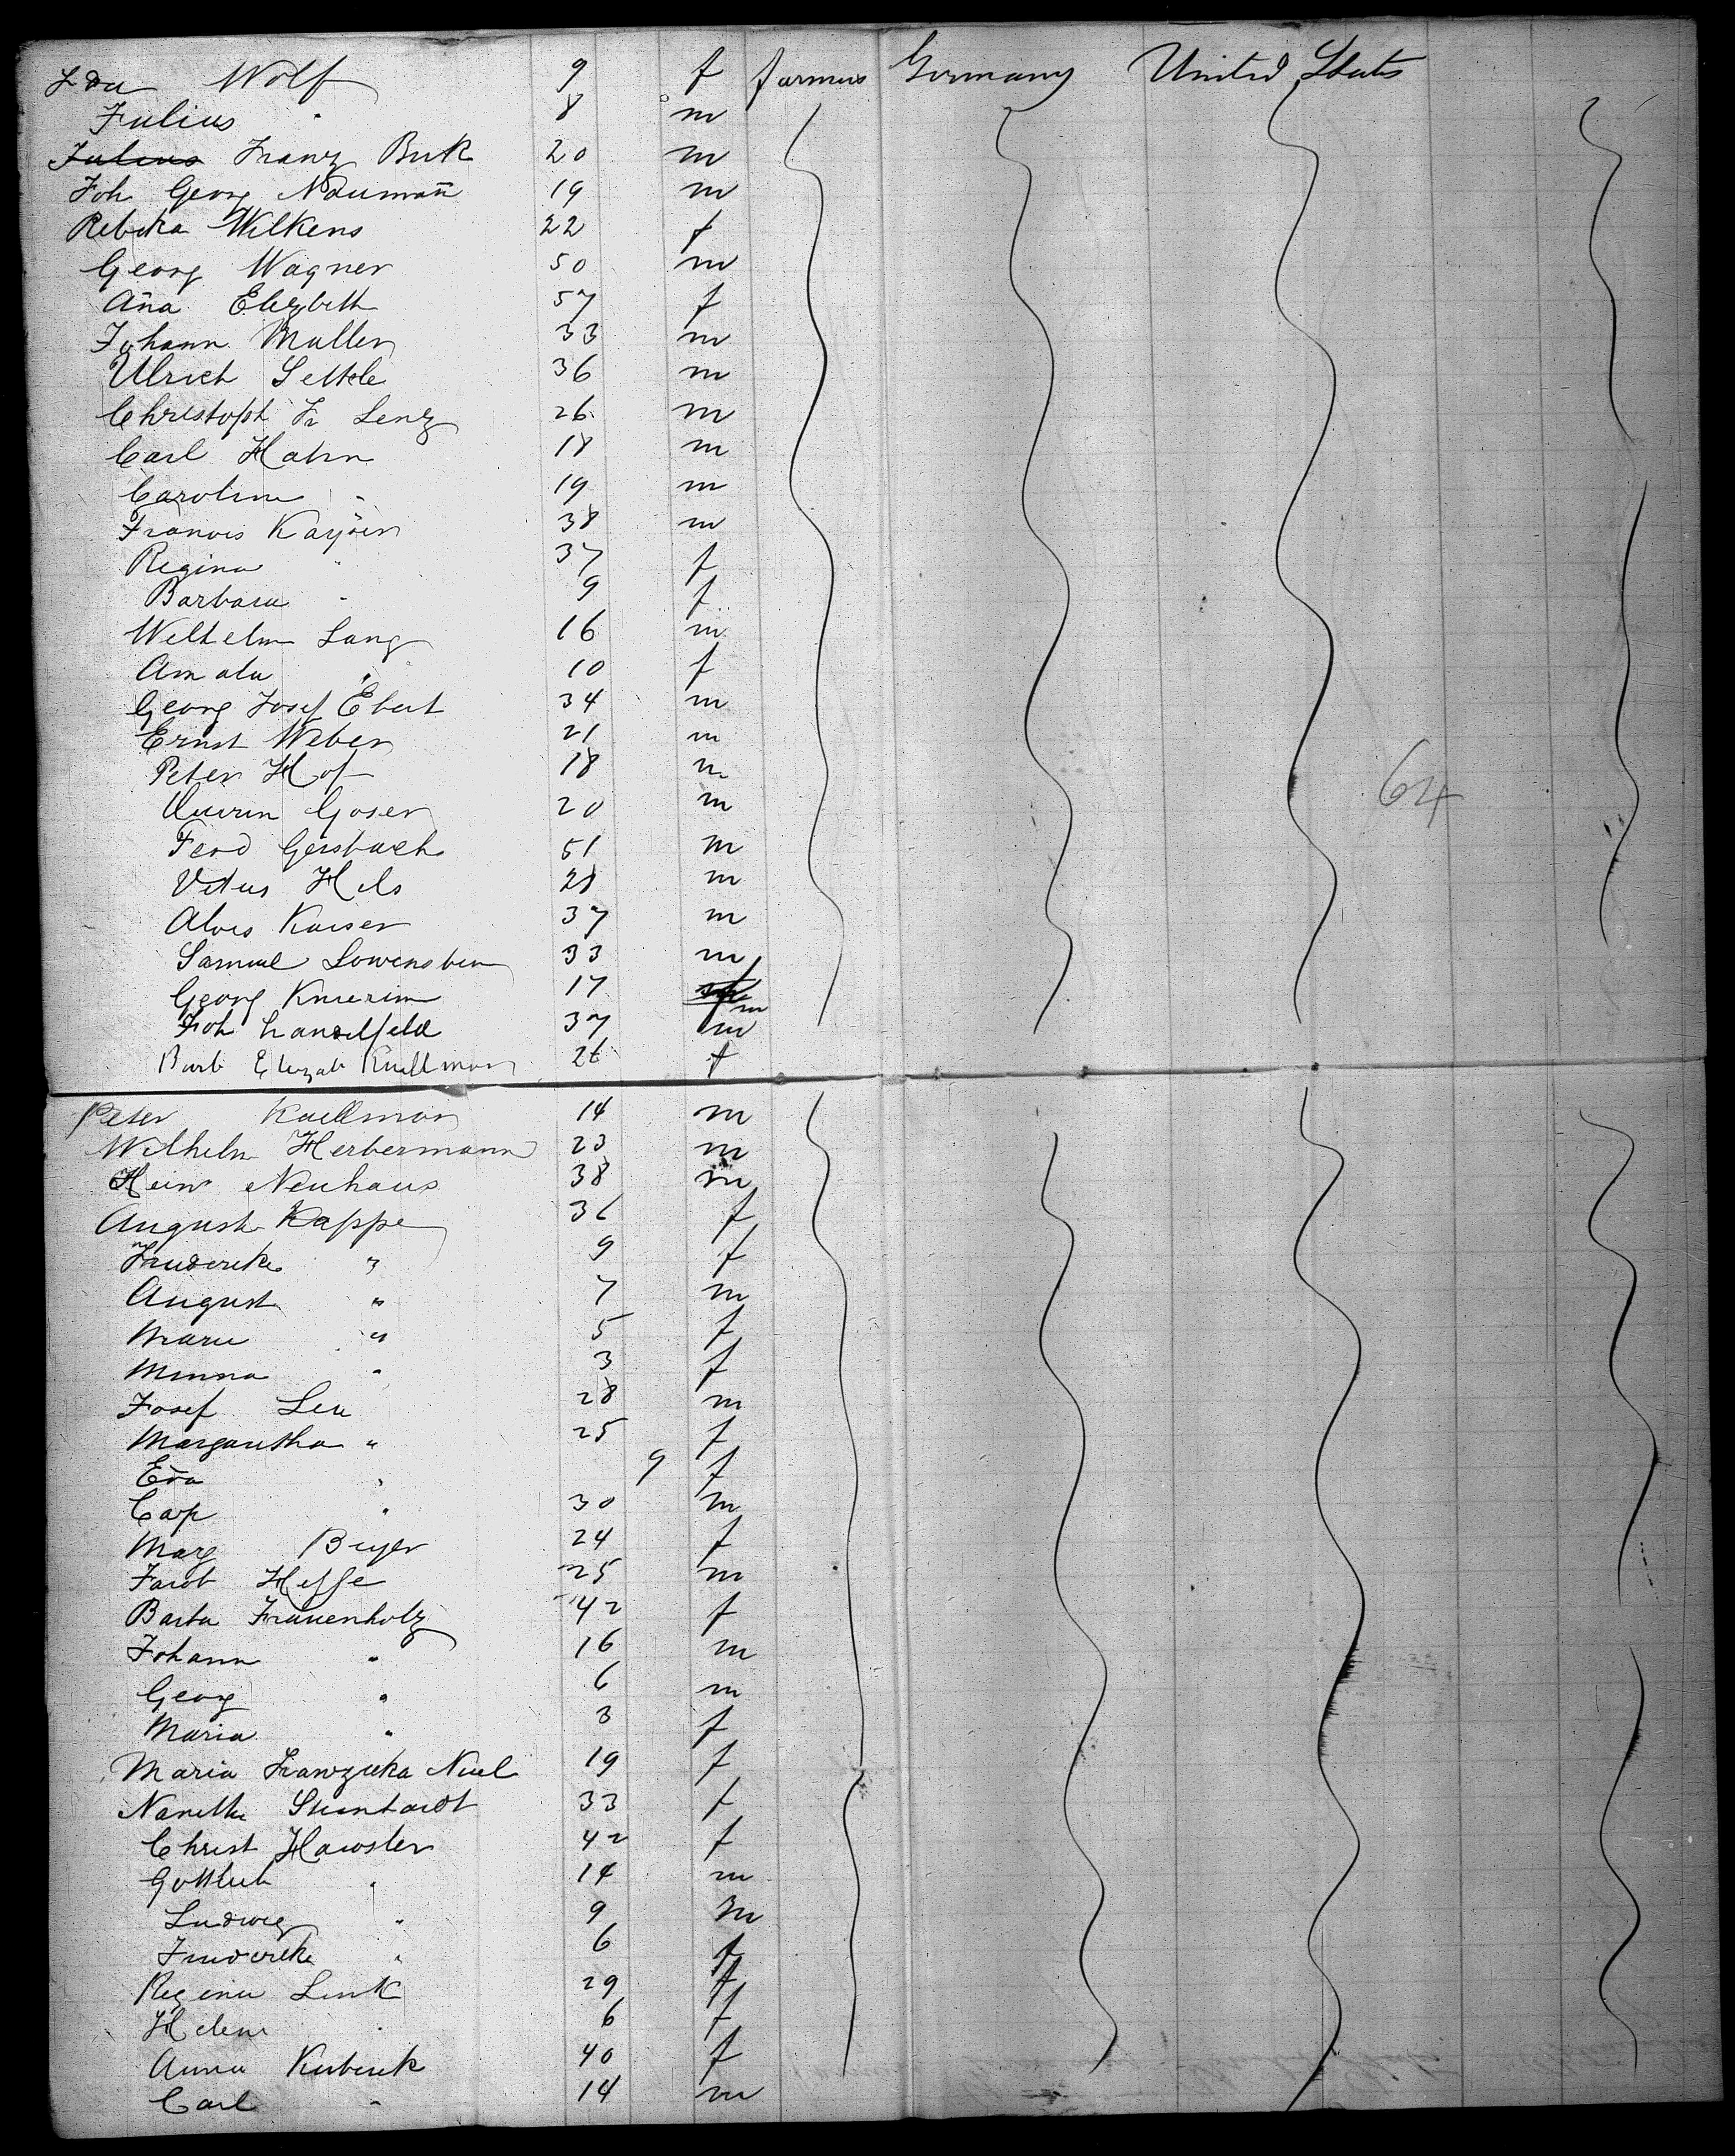 Ida Wolf 9 f farmers Germany United States
Julius " 8 m
Julius Franz Buk 20 m
Joh Georg Naumañ 19 m
Rebeka Wilkens 22 f
Georg Wagner 50 m
Aña Elizbeth 57 f
Johann Muller 33 m
Ulrich Settele 36 m
Christoph Fr Lenz 26 m
Carl Hahn 18 m
Caroline " 19 m
Francis Kayser 38 m
Regina " 37 f
Barbara " 9 f
Wilhelm Lang 16 m
Amalu " 10 f
Georg Josef Ebert 34 m
Ernst Weber 21 m
Peter Hof 18 m
Goser 20 m
Ferd Geisbach 51 m
Vitus Hils 28 m
Alois Kaiser 37 m
Samuel Lowenstein 33 m
Georg Knierim 17 m
Joh Landefeld 37 m
Barb Elizab Kuellman 26 f
64
Peter Kuellman 14 m
Wilhelm Herbermann 23 m
Hein Neuhaus 38 m
August Kappe 36 f
Friedereke " 9 f
August " 7 m
Marie " 5 f
Minna " 3 f
Josef Leu 28 m
Margaretha " 25 f
Eva " 9 f
Casp " 30 m
Marg Beyer 24 f
Jacob Hesse 25 m
Barba Frauenholz 42 f
Johann " 16 m
Georg " 6 m
Maria " 3 f
Maria Franziska Nuel 19 f
Nanette Steinhardt 33 f
Christ Hausler 42 f
Gottlieb " 14 m
Ludwig " 9 m
Friedereke " 6 f
Regina Link 29 f
Helene " 6 f
Anna Kubeck 40 f
Carl " 14 m